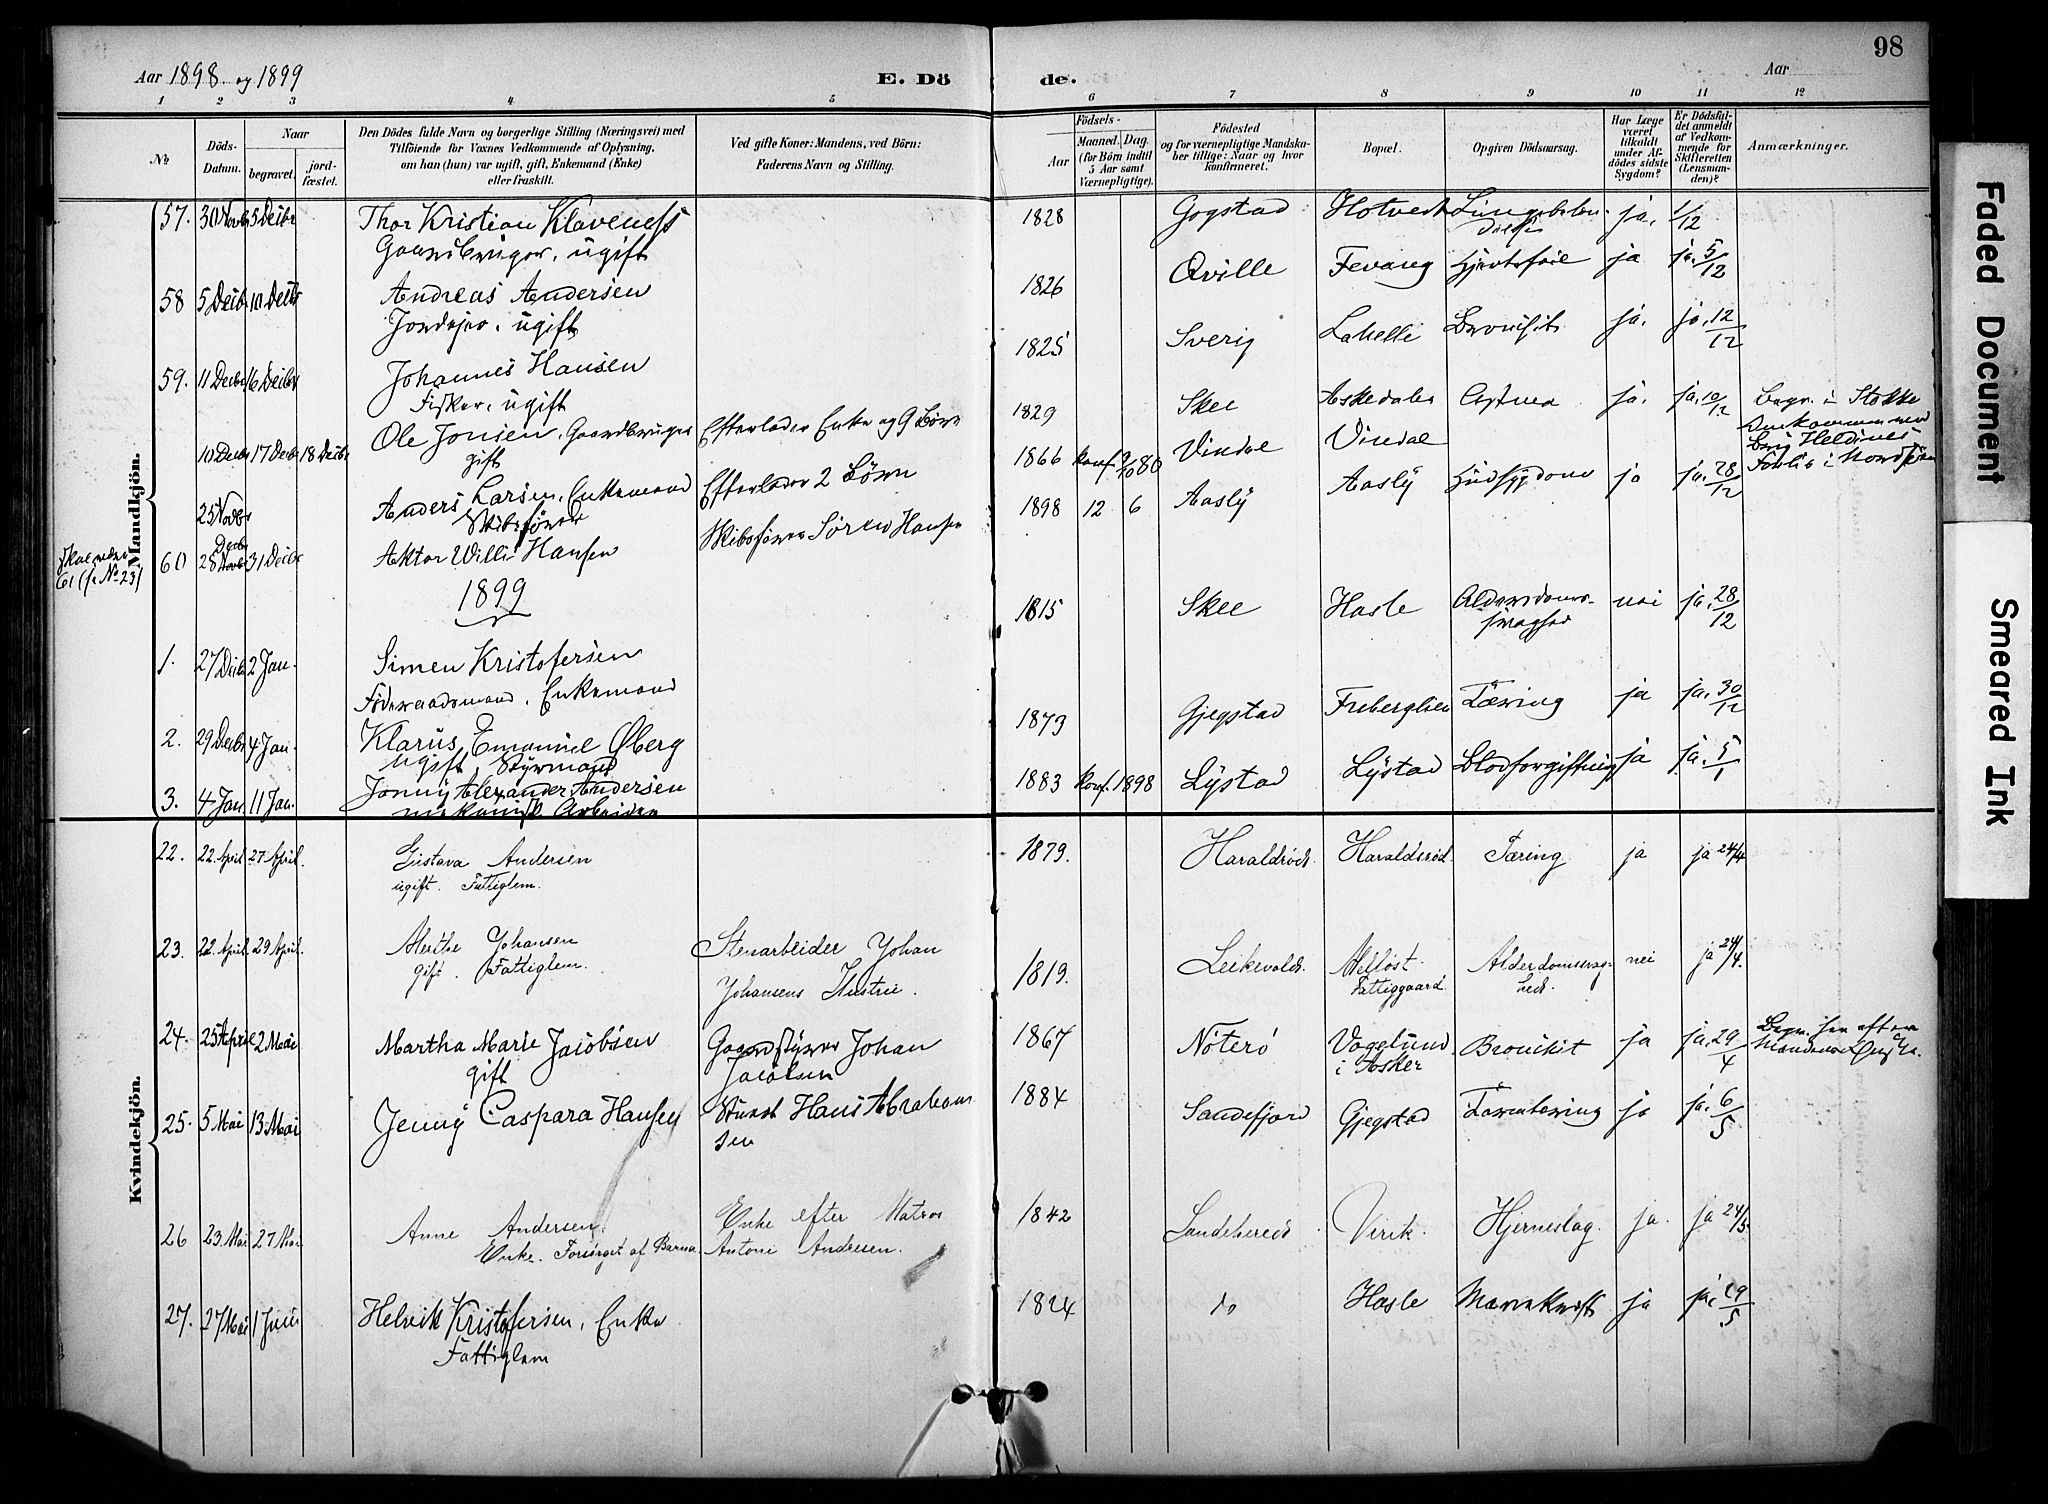 98
Aar 1898 og 1899
E. Dö de.
Aar
1 2 3 4 5 6 7 8 9 10 11 12
No
Döds-Datum.
Naar
begravet.
jord-fæstet.
Den Dödes fulde Navn og borgerlige Stilling (Næringsvei) med
Tilföiende for Voxnes Vedkommende af Oplysning,
om han (hun) var ugift, gift, Enkemand (Enke)
eller fraskilt.
Ved gifte Koner: Mandens, ved Börn:
Faderens Navn og Stilling.
Födsels-
Aar
Maaned. Dag.
(for Börn indtil
5 Aar samt
Værnepligtige).
Födested
og for værnepligtige Mandska-
ber tillige: Naar og hvor
konfirmeret.
Bopæl.
Opgiven Dödsaarsag.
Har Læge
været
tilkaldt
under Af-
dödes sidste
Sygdom?
Er Dödsfal-
det anmeldt
af Vedkom-
mende for
Skifteretten
(Lensman-
den)?
Anmærkninger.
Mandkjön.
57. 30 Novbr 5 Decbr Thor Kristian Klaveness 1828 Gogstad Hotvedt ja. 1/12
Gaardbruger, ugift
58 5 Decbr 10 Decbr Andreas Andersen 1826 Qville Fevang Hjertefeil ja ja. 5/12
Jordejer, ugift
59. 11 Decbr 16 Decbr Johannes Hansen 1825 Sverig Lahelle Bronchit ja. ja. 12/12
Fisker, ugift
10 Decbr 17 Decbr 18 Decbr Ole Jonsen, Gaardbruger Efterlader Enke og 9 Börn 1829 Skee Askedalen Astma ja. ja. 10/12 Begr. i Stokke
gift
25 Novbr Anders Larsen, Enkemand Efterlader 2 Börn 1866 konf. 80 Vindal Vindal
Skibsförer
60 28 Decbr 31 Decbr Aktor Willi Hansen Skibsförer Sören Hansen 1898 12 6 Aasly Aasly Hudsygdom ja ja. 28/12
61 (fr No 23)
1899
1. 27 Decbr 2 Jan. Simen Kristofersen 1815 Skee Hasle Alderdoms- nei ja. 28/12
svaghed
Föderaadsmand, Enkemand
2. 29 Decbr 4 Jan. Klarus Emanuel Øberg 1873 Gjegstad Freberglien Tæring ja ja. 30/12
ugift, Styrmand
3. 4 Jan 11 Jan. Jonny Alexander Andersen 1883 konf. 1898 Lystad Lystad Blodforgiftning ja ja. 5/1
mekanisk Arbeider
Kvindekjön.
22. 22 April 27 April. Gustava Andersen 1879. Haraldröd. Haraldsröd. Tæring ja ja 24/4
ugift. Fattiglem.
23. 22 April. 29 April. Merthe Johansen Stenarbeider Johan 1819. Leikevold. Melløst Alderdomssvag- nei ja 24/4.
gift. Fattiglem. Johansens Hustru. Fattiggaard. hed.
24. 25 April 2 Mai Martha Marie Jacobsen Gaardstyrer Johan 1867 Nöterö Vogglund Bronchit ja ja. 29/4
gift Jacobsen i Asker
25. 5 Mai 13 Mai Jenny Caspara Hansen Stuert Hans Abraham 1884 Sandefjord Gjegstad Tarmtæring ja ja. 6/5
sen
26 23. Mai 27 Mai Anne Andersen. Enke efter Matros 1842 Sandehered. Virik. Hjerneslag. ja. ja 24/5
Enke. Forsörget af Barna. Antoni Andresen.
27. 27 Mai 1 Juni Helvik Kristofersen, Enke 1824 do Hasle Mavekræft ja ja. 29/5
Fattiglem
Faded Document
Smeared Ink